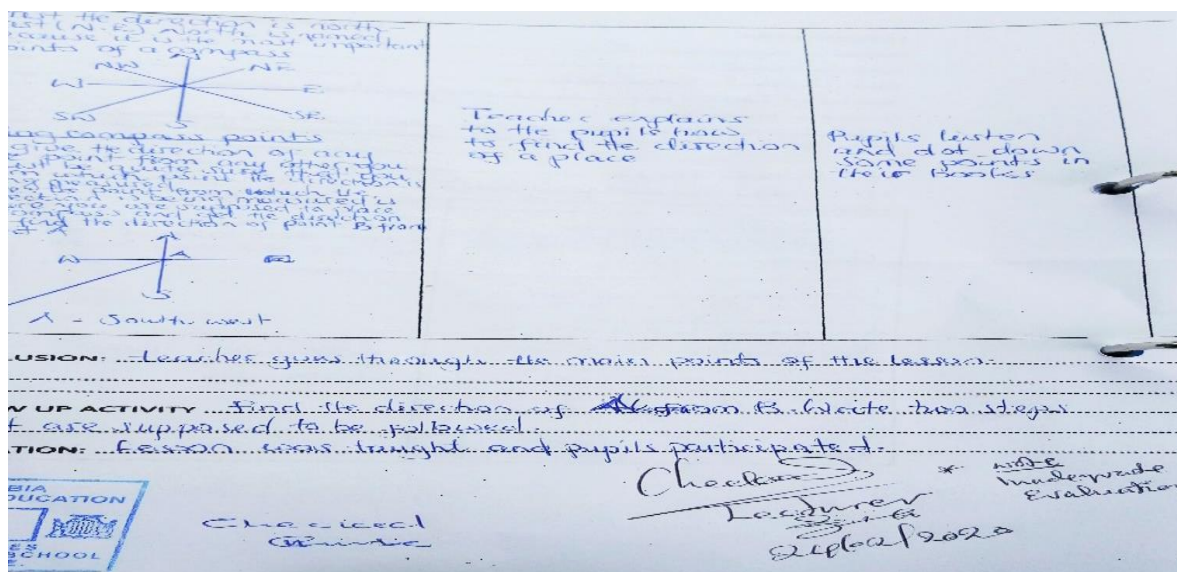 the direction is north
(N.E) North is named
because it is the most important
points of a compass
N
NW NE
W E
SW SE
S
compass points
give the direction of any
point from any other, you
that you
which point the direction is
measured
the point from which the
is being measured is
you are supposed to place
compass and get the direction
find the direction of point B from
A
W A
S
A - South west
Teacher explains
to the pupils how
to find the direction
of a place
Pupils listen
and dot down
some points in
their books
USION: Teacher goes through the main points of the lesson.
W UP ACTIVITY Find the direction of from B. Write two steps
are supposed to be followed.
TION: Lesson was taught and pupils participated.
BIA
DUCATION
ES
SCHOOL
Checked
Checked
Lecturer
24/02/2020
* note
Inadequate
Evaluation